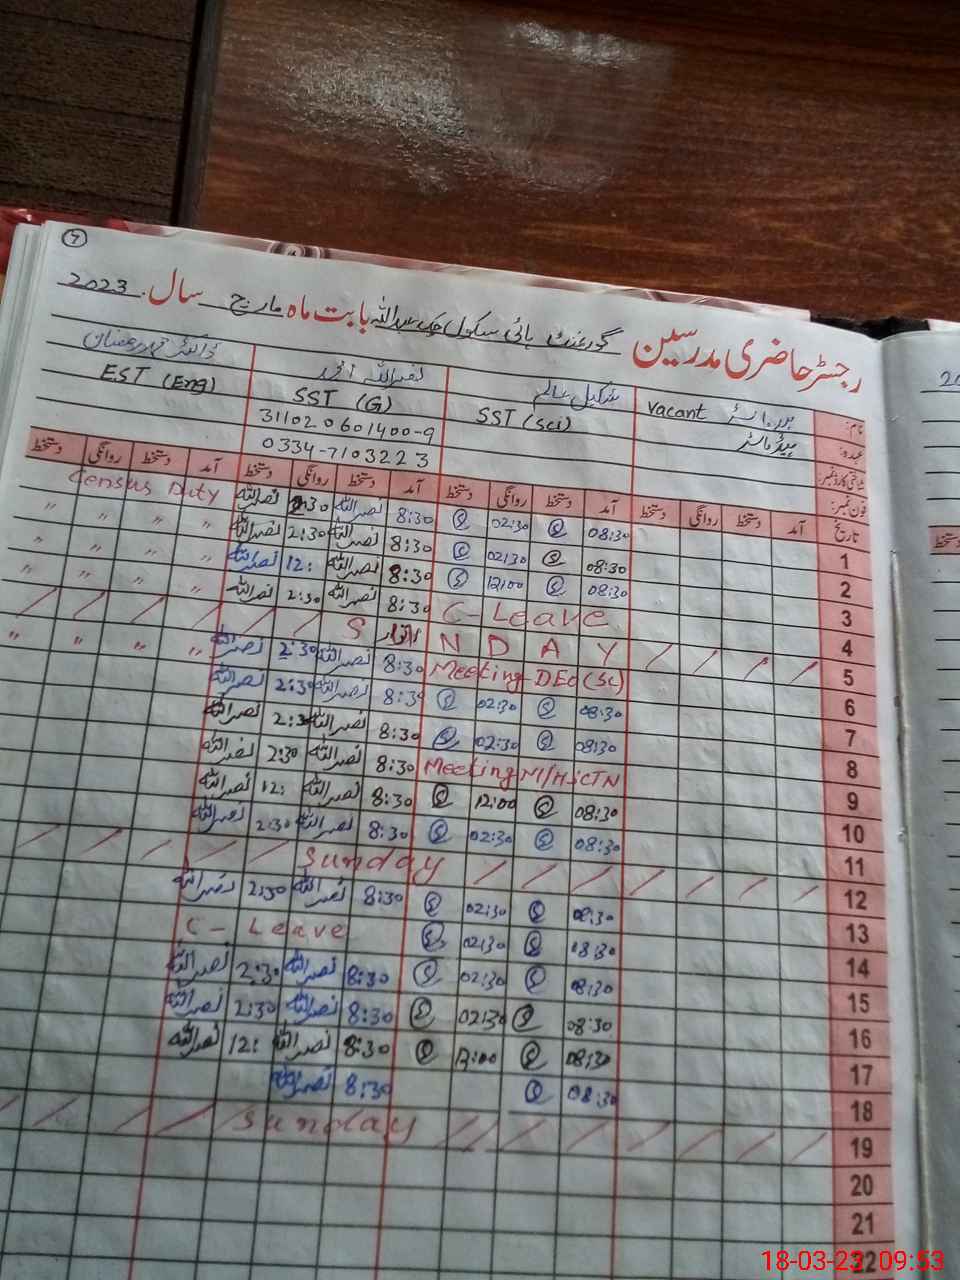 7
رجسٹر حاضری مدرسین گورنمنٹ ہائی سکول چک عبداللہ بابت ماہ مارچ سال 2023
نام: Vacant شکیل عالم نصراللہ
عہدہ: ہیڈ ماسٹر SST (Sci) SST (G) EST (Eng)
شناختی کارڈ نمبر: 311020601400-9
فون نمبر: 0334-7103223
تاریخ آمد دستخط روانگی دستخط آمد دستخط روانگی دستخط آمد دستخط روانگی دستخط آمد دستخط روانگی دستخط
1 08:30 02:30 8:30 نصراللہ 2:30 نصراللہ Census Duty
2 08:30 02:30 8:30 نصراللہ 2:30 نصراللہ " " " "
3 08:30 12:00 8:30 نصراللہ 12: نصراللہ " " " "
4 C-Leave 8:30 نصراللہ 2:30 نصراللہ " " " "
5 S اتوار N D A Y
6 Meeting DEO (SC) 8:30 نصراللہ 2:30 نصراللہ " " " "
7 08:30 02:30 8:30 نصراللہ 2:30 نصراللہ
8 08:30 02:30 8:30 نصراللہ 2:30 نصراللہ
9 Meeting 8:30 نصراللہ 2:30 نصراللہ
10 08:30 12:00 8:30 نصراللہ 12: نصراللہ
11 08:30 02:30 8:30 نصراللہ 2:30 نصراللہ
12 Sunday
13 08:30 02:30 8:30 نصراللہ 2:30 نصراللہ
14 08:30 02:30 C-Leave
15 08:30 02:30 8:30 نصراللہ 2:30 نصراللہ
16 08:30 02:30 8:30 نصراللہ 2:30 نصراللہ
17 08:30 12:00 8:30 نصراللہ 12: نصراللہ
18 08:30 8:30 نصراللہ
19 Sunday
20
21
22
20
دستخط
18-03-23 09:53